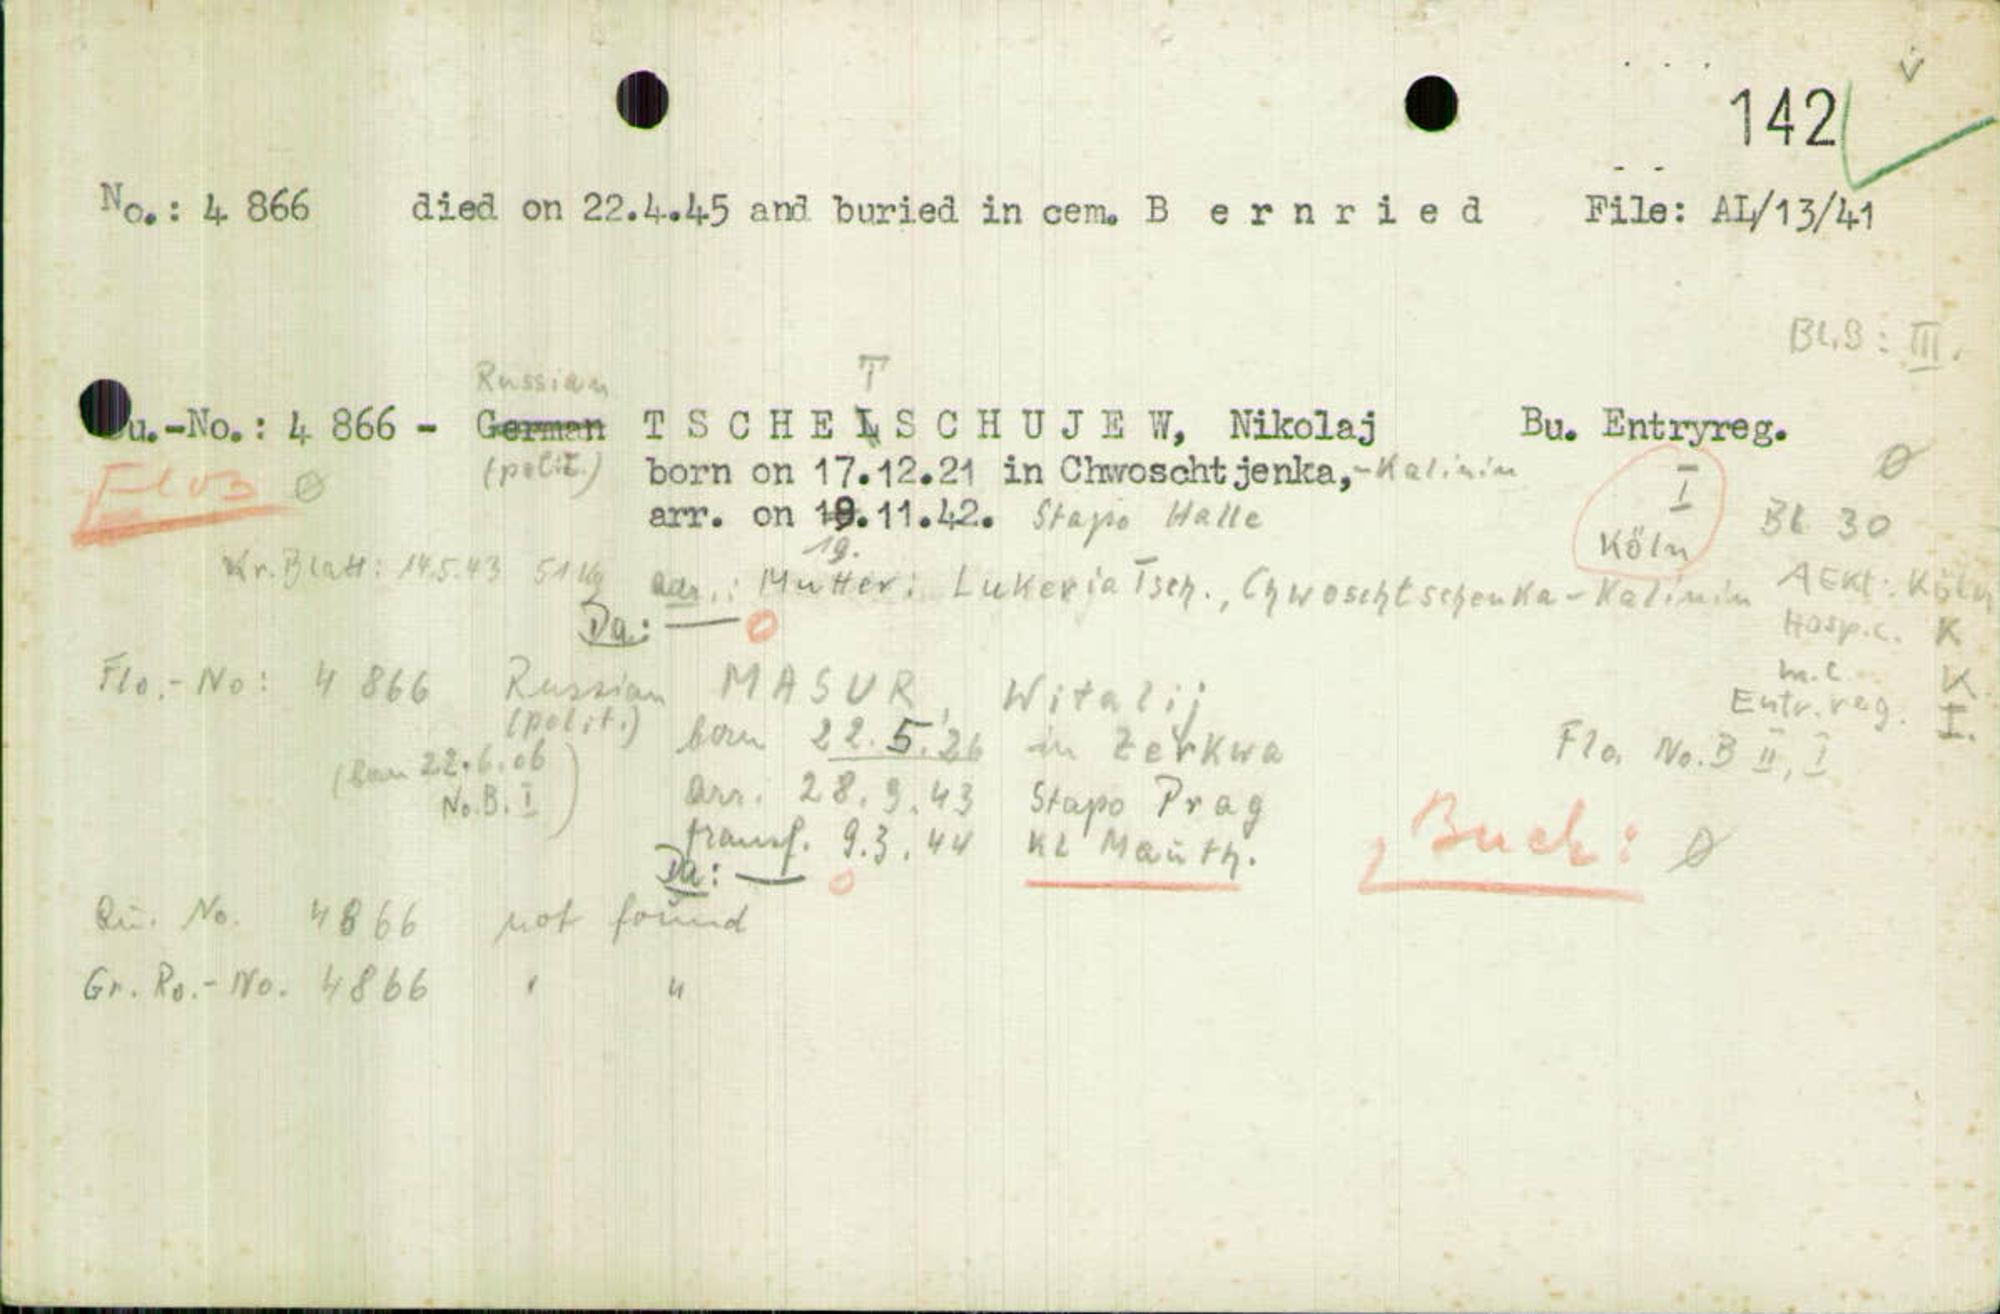 142
No.: 4 866 died on 22.4.45 and buried in cem. B e r n r i e d File: AL/13/41
Bl.B: III.
Russian T
Bu.-No.: 4 866 - German T S C H E L S C H U J E W, Nikolaj Bu. Entryreg.
(polit.) born on 17.12.21 in Chwoschtjenka,-Kalinin I
Flo B Ø arr. on 19.11.42. Stapo Halle Köln Bl 30 Ø
19.
Kr.Blatt: 14.5.43 51 kg adr.: Mutter: Lukeria Tsch., Chwoschtschenka-Kalinin AEKt: Köln
Da: — O Hosp.c. K
Flo.-No: 4 866 Russian MASUR, Witalij m.c. K.
(polit.) born 22.5.26 in Zerkwa Entr.reg. I.
(born 22.6.06 Flo. No.B II, I
No.B. I) arr. 28.9.43 Stapo Prag
transf. 9.3.44 KL Mauth. Buch: Ø
Da: — O
Qu. No. 4866 not found
Gr. Ro.-No. 4866 " "